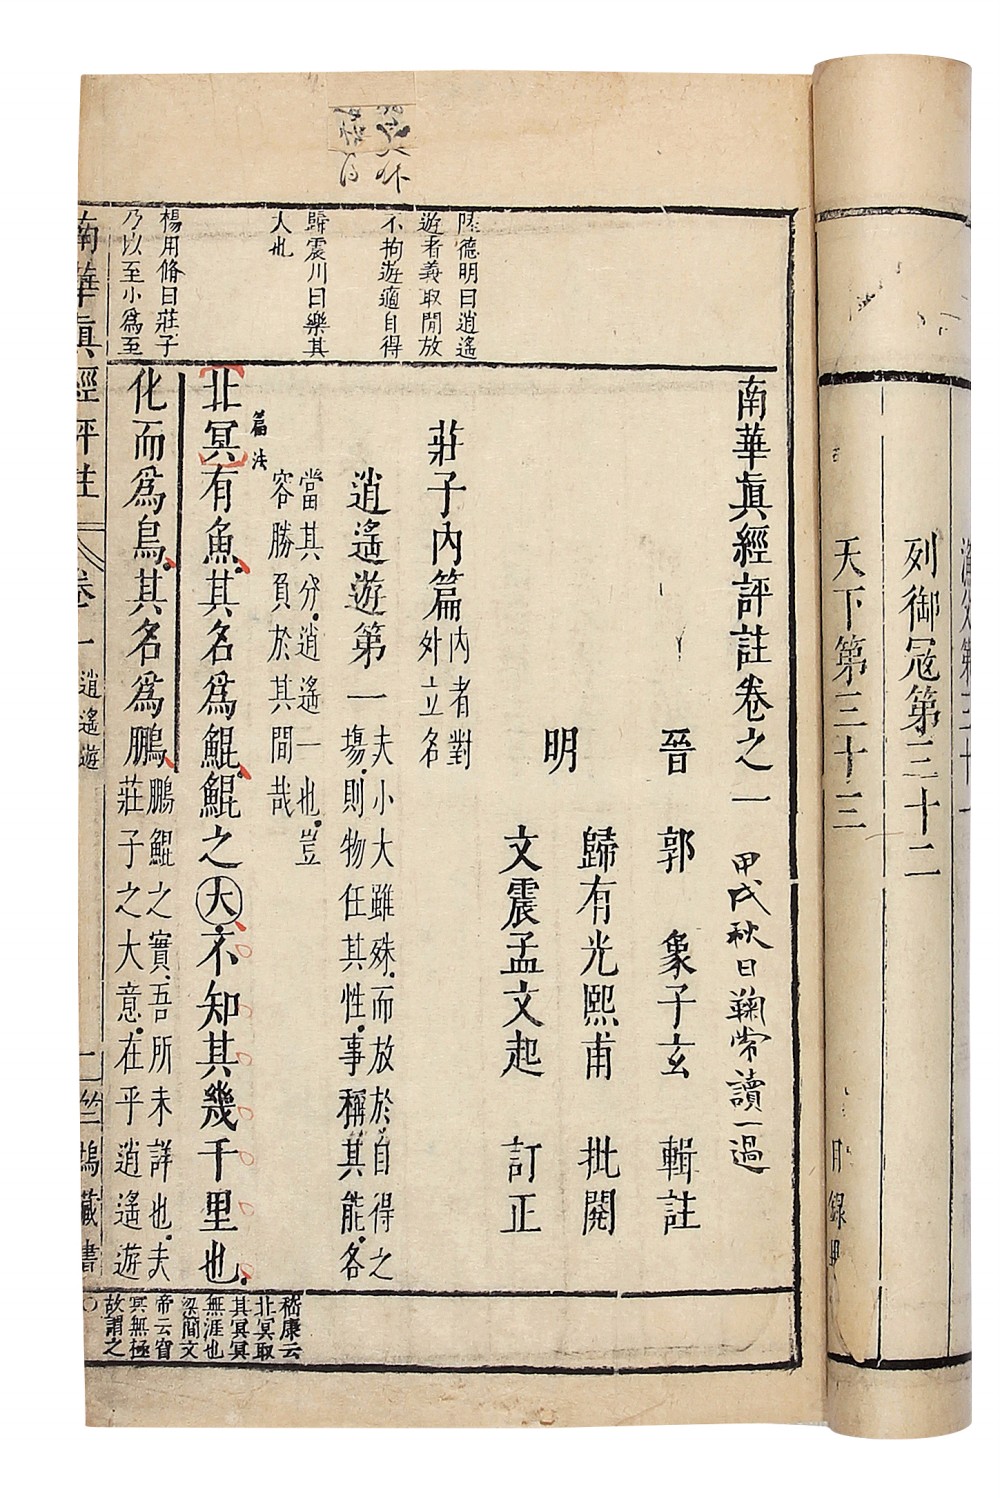 列御寇第三十二
天下第三十三
目錄
南華眞經評註卷之一
甲戌秋日鞠常讀一過
晉 郭 象子玄 輯註
明 歸有光熙甫 批閱
文震孟文起 訂正
莊子內篇
內者對
外立名
逍遙遊第一
夫小大雖殊而放於自得之
塲則物任其性事稱其能各
當其分逍遙一也豈
容勝負於其間哉
篇法
北冥有魚其名爲鯤鯤之大不知其幾千里也
化而爲鳥其名爲鵬
鵬鯤之實吾所未詳也夫
莊子之大意在乎逍遙遊
陸德明曰逍遙
遊者義取閒放
不拘遊適自得
歸震川曰樂其
大也
楊用脩曰莊子
乃以至小爲至
嵇康云
北冥取
其冥冥
無涯也
梁簡文
帝云窅
冥無極
故謂之
南華眞經評註
卷一
逍遙遊
一
竺塢藏書